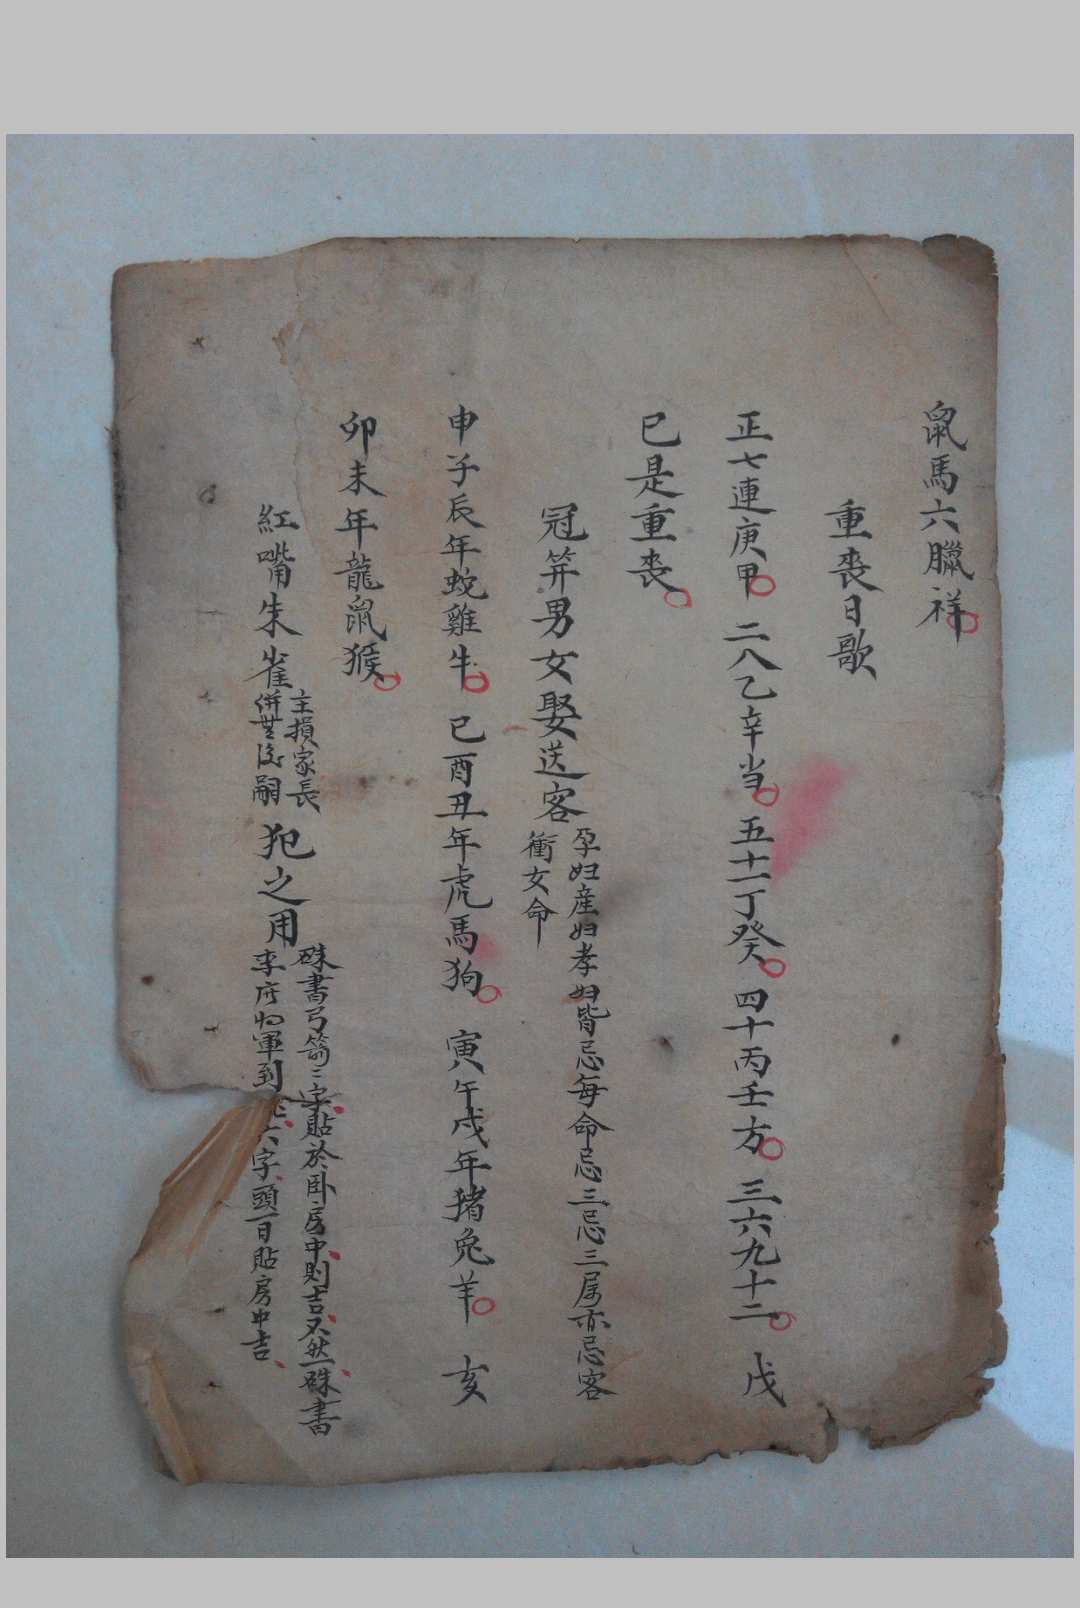 鼠馬六臘祥
重喪日歌
正七連庚甲 二八乙辛当 五十一丁癸 四十丙壬方 三六九十二 戊
已是重喪
冠笄男女娶送客
孕妇産妇孝妇皆忌每命忌三忌三属亦忌客
衝女命
申子辰年蛇雞牛 巳酉丑年虎馬狗 寅午戌年猪兔羊 亥
卯未年龍鼠猴
紅嘴朱雀
主損家長
併無後嗣
犯之用
硃書弓箭二字貼於卧房中則吉又然硃書
李府将軍到 六字頭百貼房中吉